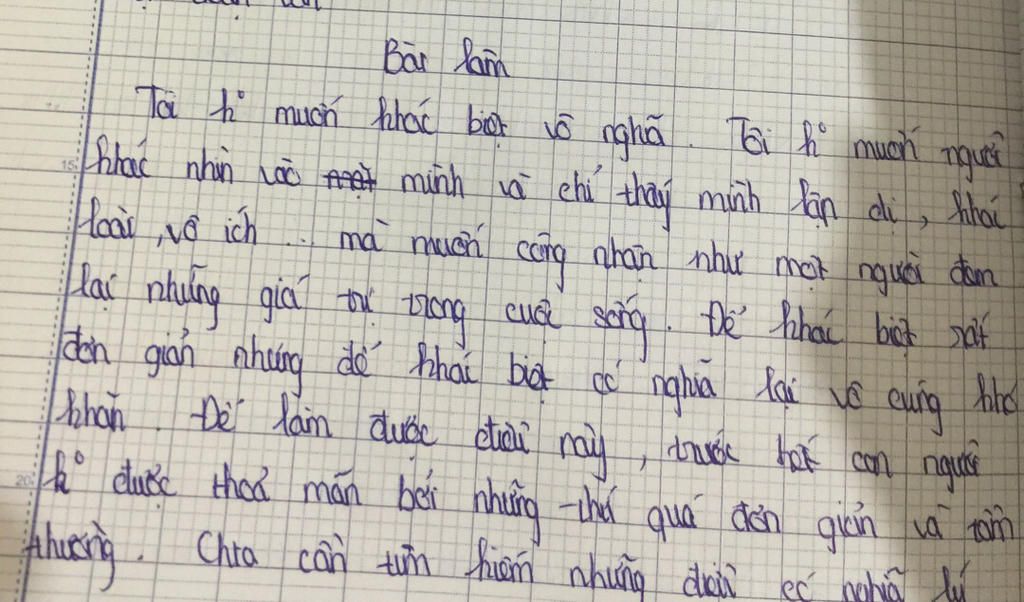 Bài làm
Tôi k° muốn khác biệt vô nghĩa. Tôi k° muốn người
khác nhìn vào một mình và chỉ thấy mình lập dị, khác
loài, vô ích... mà muốn công nhận như một người đem
lại những giá trị trong cuộc sống. Để khác biệt rất
đơn giản nhưng để khác biệt có nghĩa lại vô cùng khó
khăn. Để làm được điều này, trước hết con người
k° được thoả mãn bởi những thứ quá đơn giản và tầm
thường. Chta cần tìm kiếm những điều có nghĩa lý